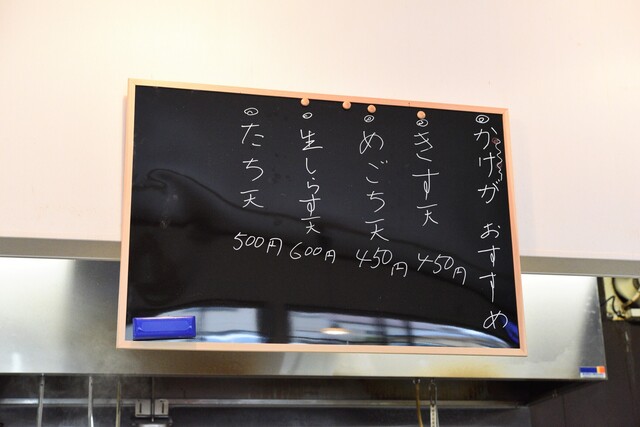 ◎かけが おすすめ
◎きす天 450円
◎めごち天 450円
◎生しらす天 600円
◎たち天 500円